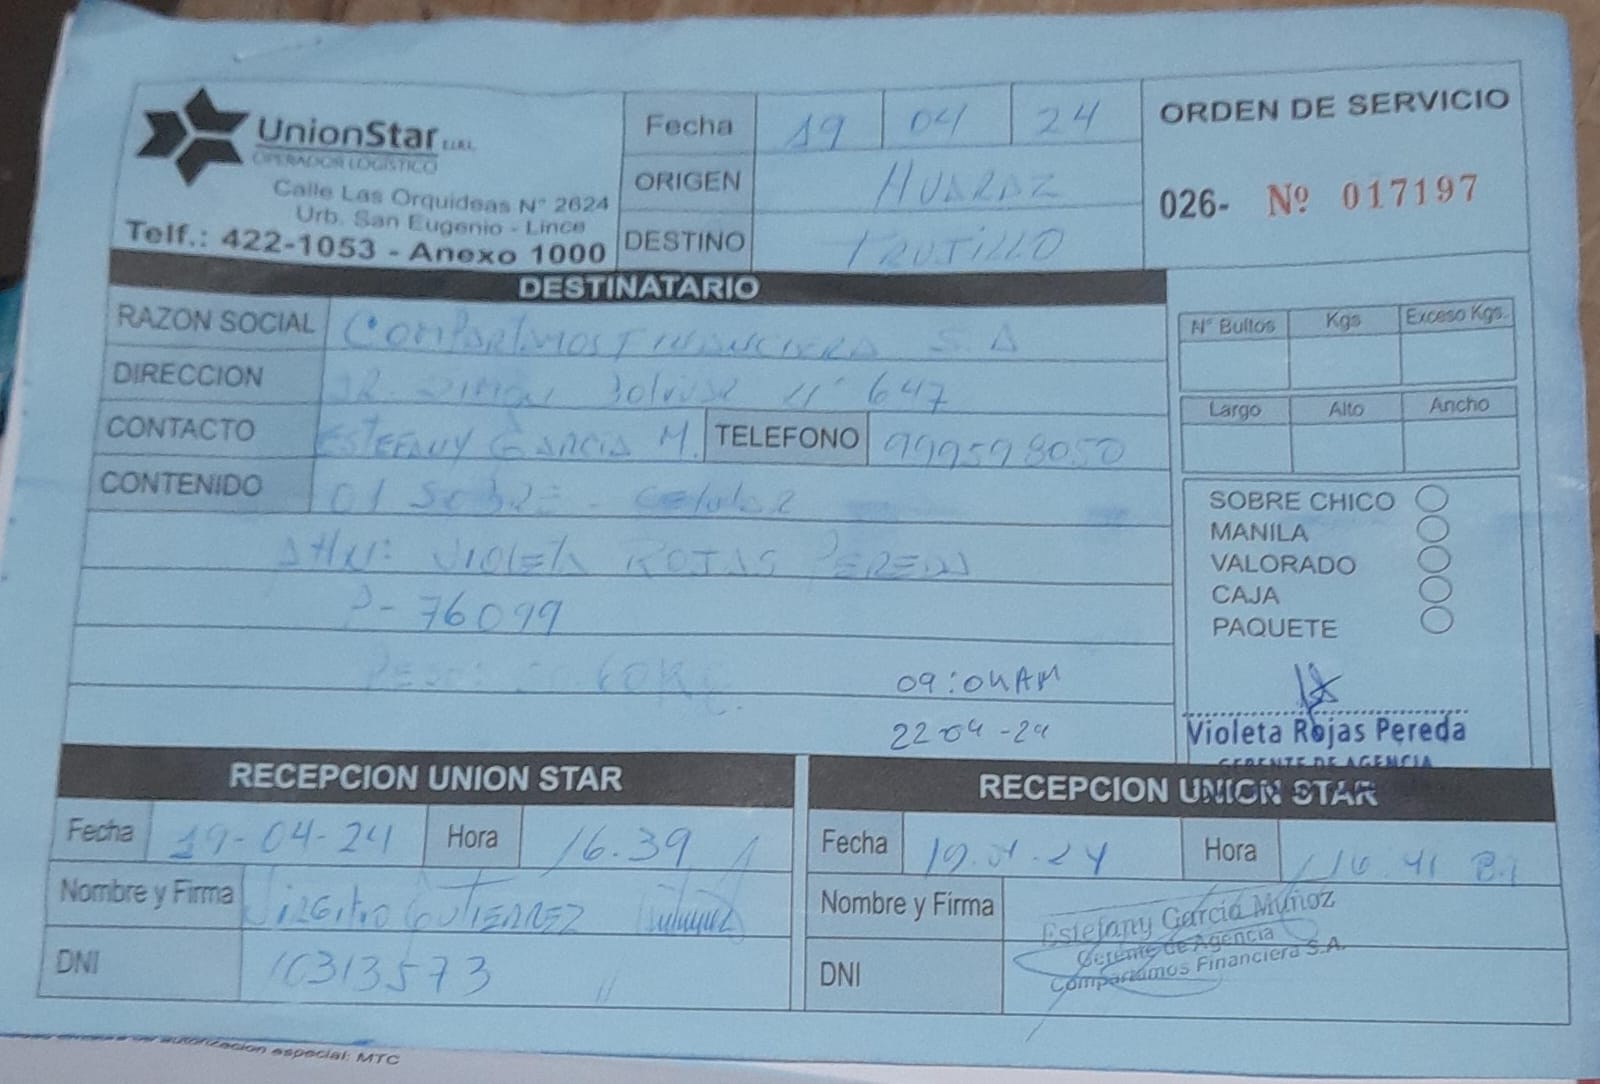 UnionStar E.I.R.L.
OPERADOR LOGISTICO
Calle Las Orquideas N° 2624
Urb. San Eugenio - Lince
Telf.: 422-1053 - Anexo 1000
Fecha 19 04 24
ORIGEN HUARAZ
DESTINO TRUJILLO
ORDEN DE SERVICIO
026- Nº 017197
DESTINATARIO
RAZON SOCIAL COMPARTAMOS FINANCIERA S.A
DIRECCION N° 647
CONTACTO ESTEFANY GARCIA M. TELEFONO 999598050
CONTENIDO 01 SOBRE - Celular
Attn: VIOLETA ROJAS PEREDA
P- 76099
60KG.
09:04AM
22-04-24
N° Bultos Kgs Exceso Kgs.
Largo Alto Ancho
SOBRE CHICO
MANILA
VALORADO
CAJA
PAQUETE
Violeta Rojas Pereda
GERENTE DE AGENCIA
RECEPCION UNION STAR
Fecha 19-04-24 Hora 16.39
Nombre y Firma GUTIERREZ
DNI 10313573
RECEPCION UNION STAR
Fecha 19.04.24 Hora 16.41
Nombre y Firma Estefany García Muñoz
Gerente de Agencia
Compartamos Financiera S.A.
DNI
autorizacion especial: MTC